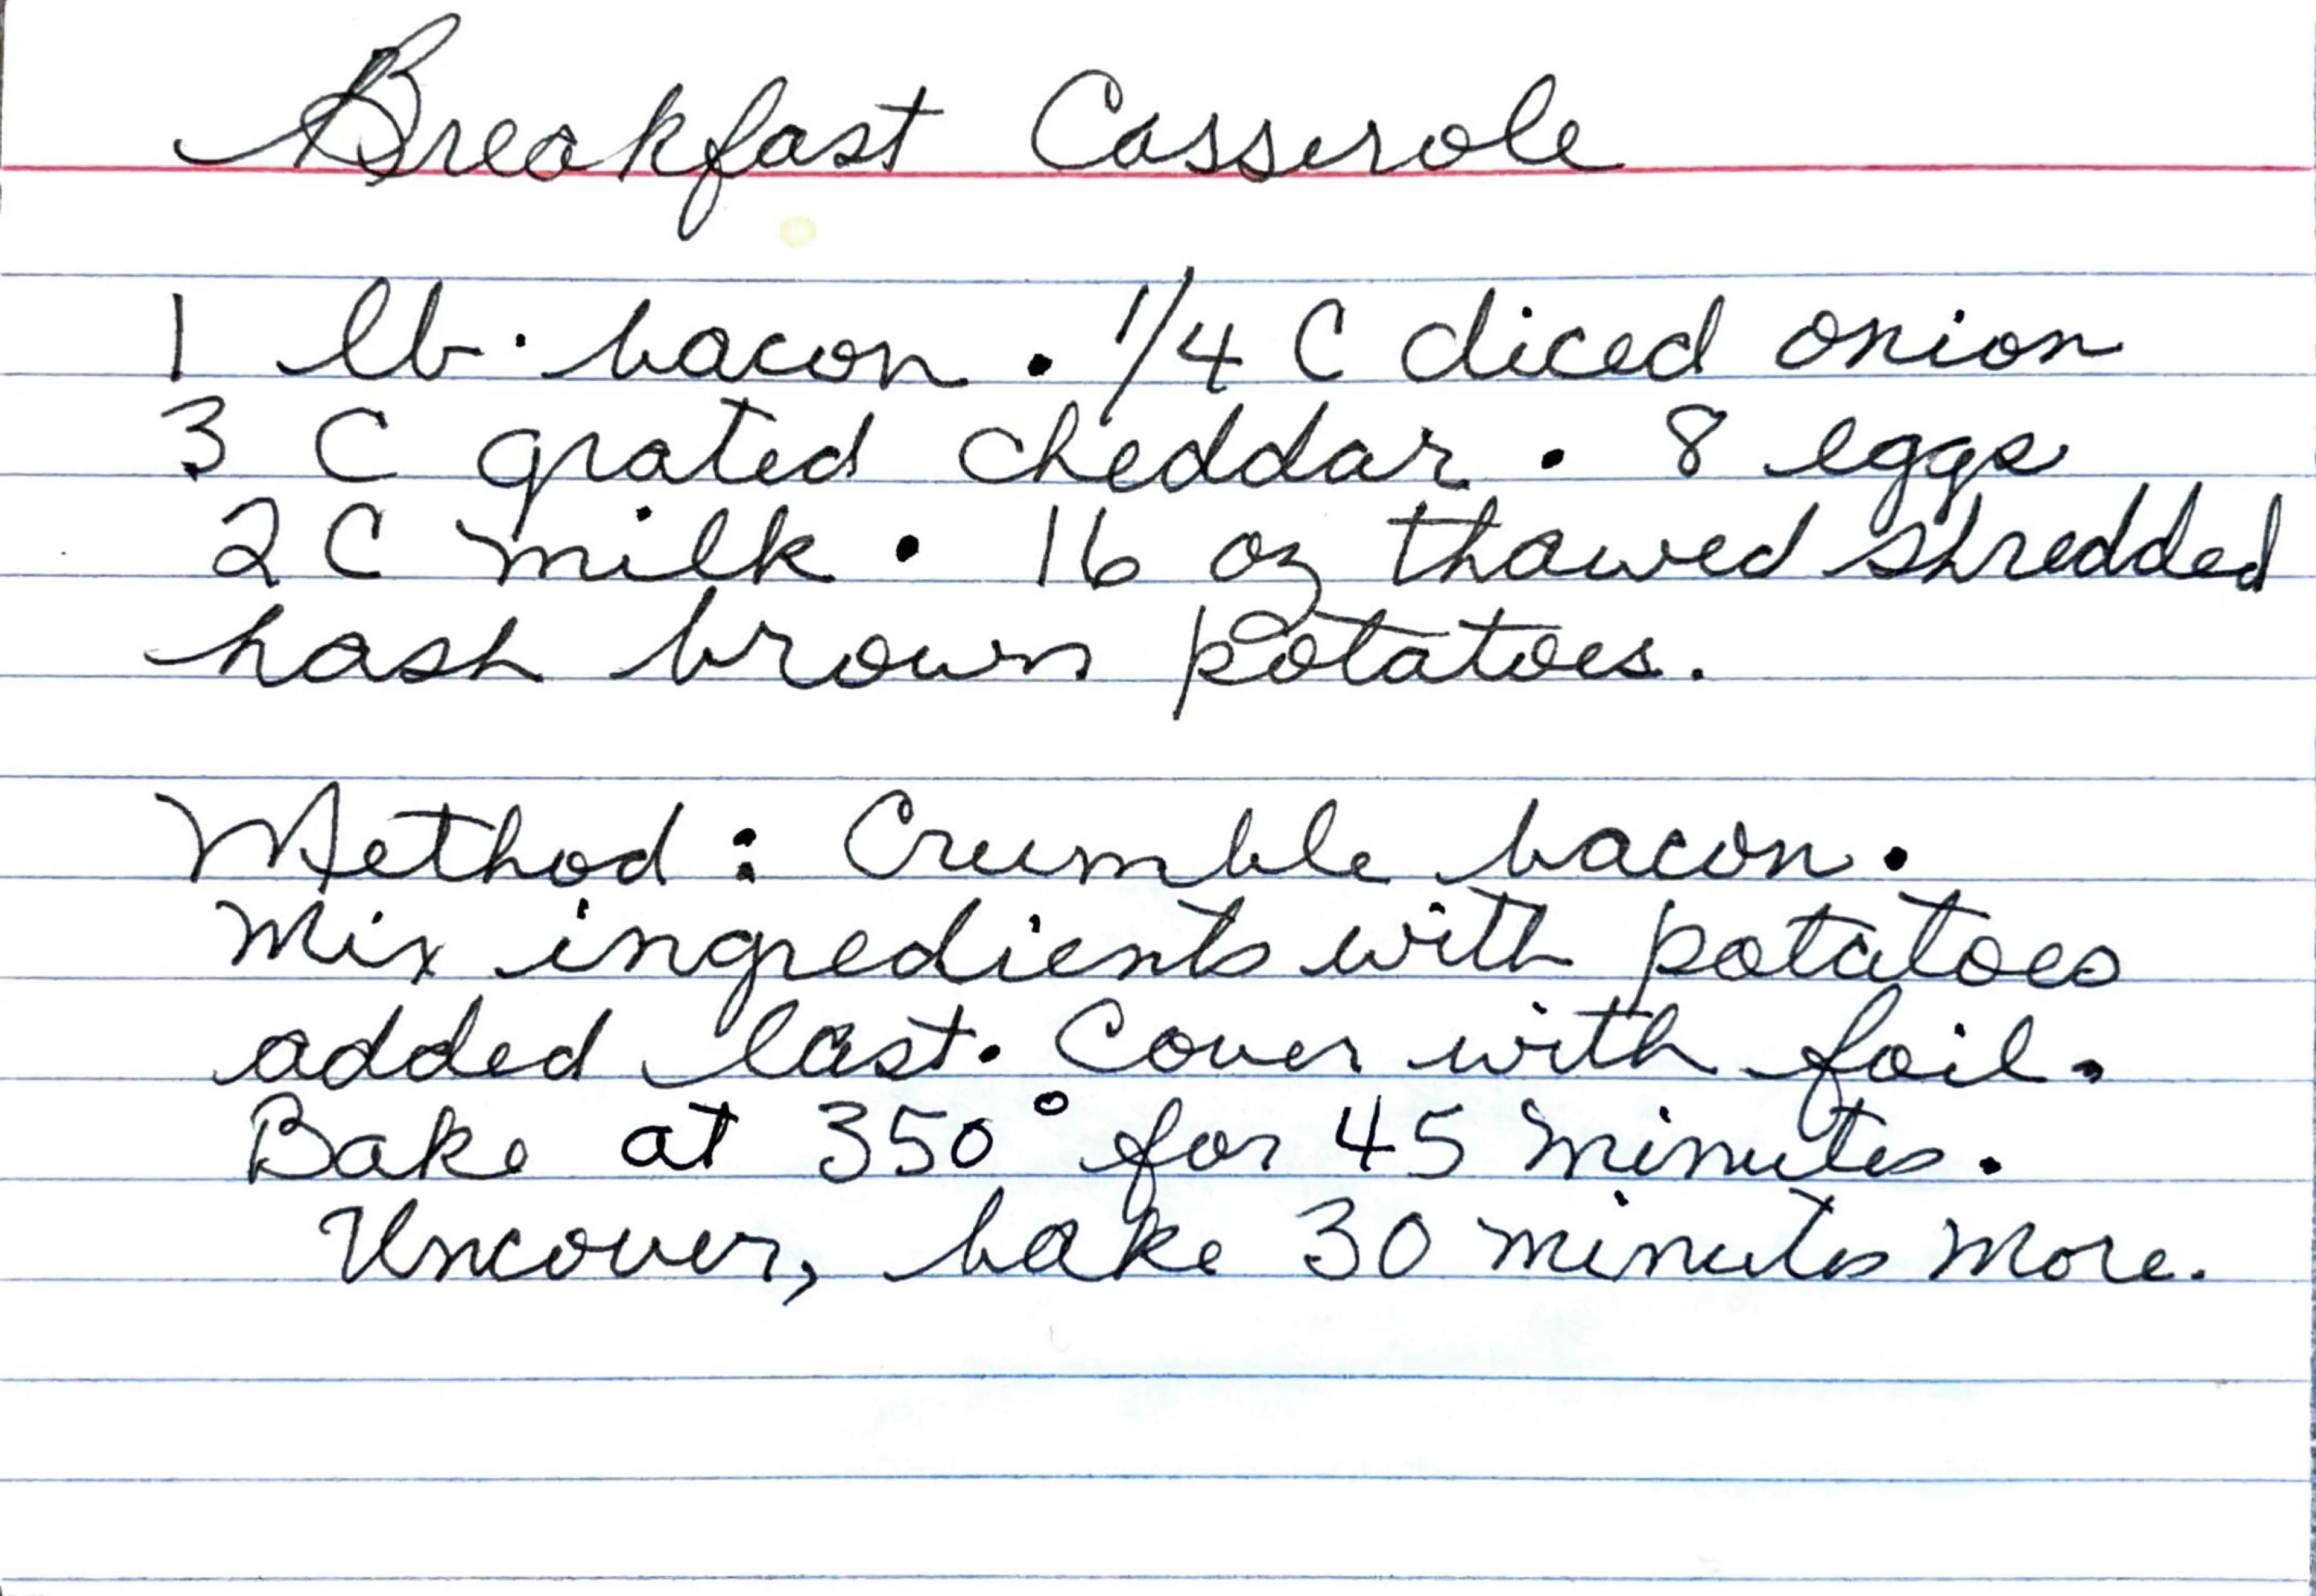 Breakfast Casserole
1 lb. bacon . 1/4 C diced onion
3 C grated cheddar . 8 eggs
2 C milk . 16 oz thawed shredded
hash brown potatoes.
Method : Crumble bacon.
Mix ingredients with potatoes
added last. Cover with foil.
Bake at 350° for 45 minutes.
Uncover, bake 30 minutes more.